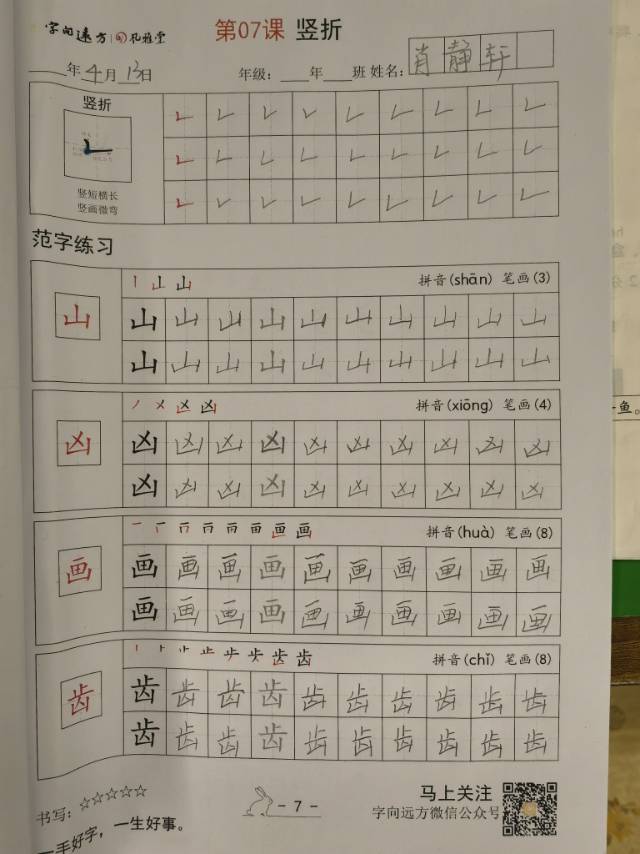 字向远方 孔雅堂 第07课 竖折
年4月13日 年级: 年 班 姓名: 肖静轩
竖折
竖短横长
竖画微弯
范字练习
山 丨 山 山 拼音(shān) 笔画(3)
山 山 山 山 山 山 山 山 山 山
山 山 山 山 山 山 山 山 山 山
凶 ノ 㐅 凶 凶 拼音(xiōng) 笔画(4)
凶 凶 凶 凶 凶 凶 凶 凶 凶 凶
凶 凶 凶 凶 凶 凶 凶 凶 凶 凶
画 拼音(huà) 笔画(8)
画 画 画 画 画 画 画 画 画 画
画 画 画 画 画 画 画 画 画 画
齿 拼音(chǐ) 笔画(8)
齿 齿 齿 齿 齿 齿 齿 齿 齿 齿
齿 齿 齿 齿 齿 齿 齿 齿 齿 齿
书写: ☆☆☆☆☆
一手好字，一生好事。
- 7 -
马上关注
字向远方微信公众号
鱼。